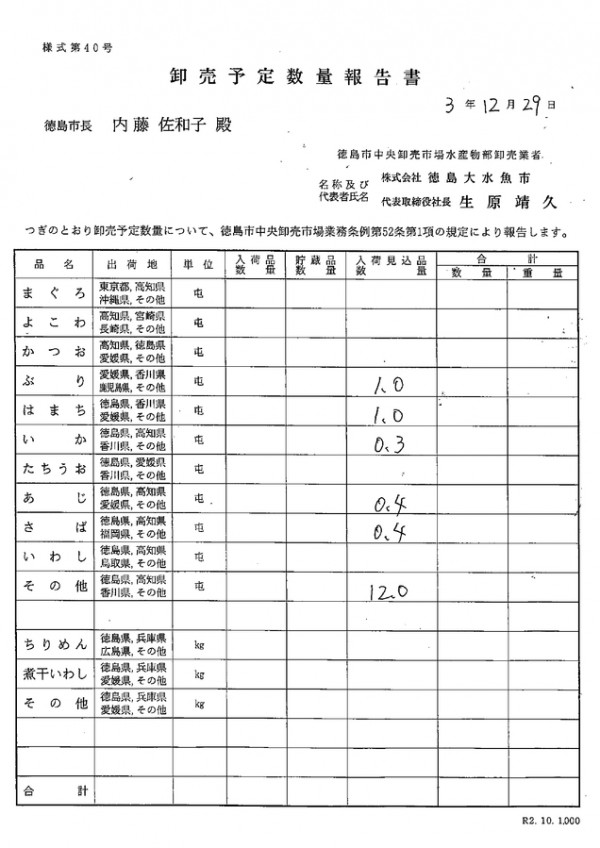 様式第40号
卸売予定数量報告書
3年12月29日
徳島市長 内藤 佐和子 殿
徳島市中央卸売市場水産物部卸売業者
名称及び 株式会社 徳島大水魚市
代表者氏名 代表取締役社長 生原靖久
つぎのとおり卸売予定数量について、徳島市中央卸売市場業務条例第52条第1項の規定により報告します。
品名 出荷地 単位 入荷品数量 貯蔵品数量 入荷見込品数量 合計 数量 重量
まぐろ 東京都, 高知県 沖縄県, その他 屯
よこわ 高知県, 宮崎県 長崎県, その他 屯
かつお 高知県, 徳島県 愛媛県, その他 屯
ぶり 愛媛県, 香川県 鹿児島県, その他 屯 1.0
はまち 徳島県, 香川県 愛媛県, その他 屯 1.0
いか 徳島県, 高知県 香川県, その他 屯 0.3
たちうお 徳島県, 愛媛県 香川県, その他 屯
あじ 徳島県, 高知県 愛媛県, その他 屯 0.4
さば 徳島県, 高知県 福岡県, その他 屯 0.4
いわし 徳島県, 高知県 鳥取県, その他 屯
その他 徳島県, 高知県 香川県, その他 屯 12.0
ちりめん 徳島県, 兵庫県 広島県, その他 kg
煮干いわし 徳島県, 兵庫県 愛媛県, その他 kg
その他 徳島県, 兵庫県 愛媛県, その他 kg
合計
R2. 10. 1,000